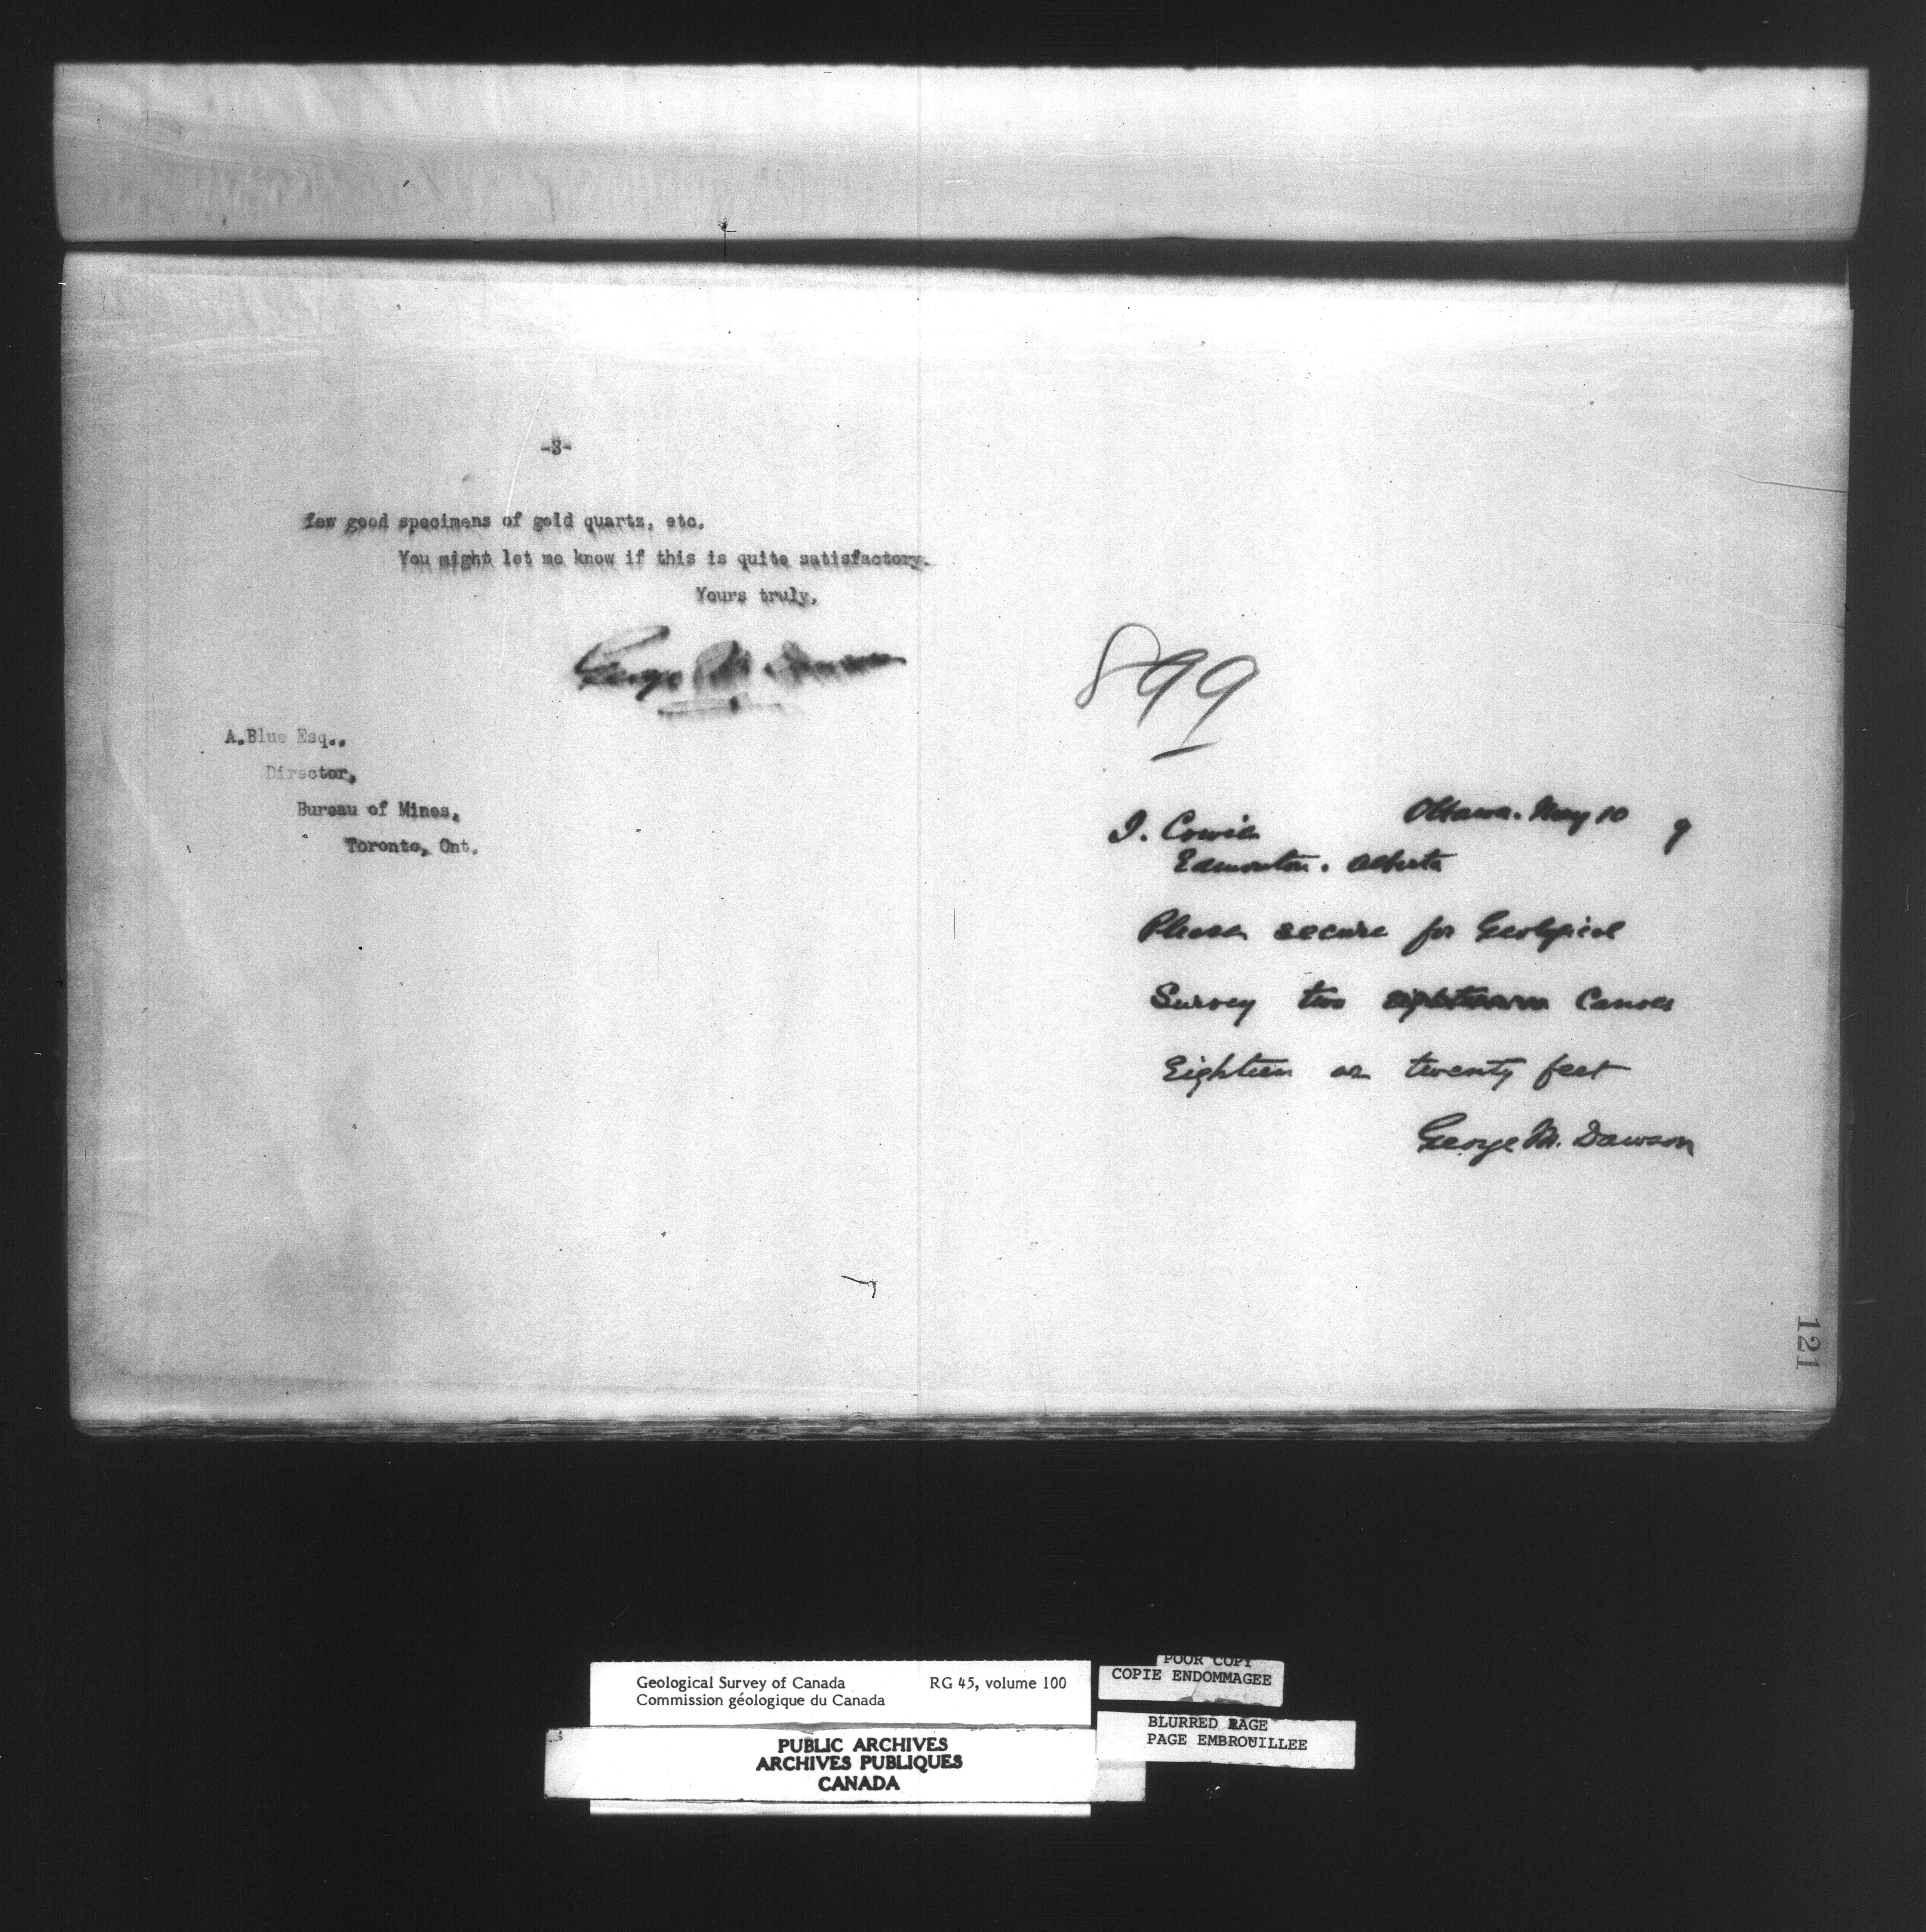 -3-
few good specimens of gold quartz, etc.
You might let me know if this is quite satisfactory.
Yours truly,
George M. Dawson
A.Blue Esq.,
Director,
Bureau of Mines,
Toronto, Ont.
899
Ottawa. May 10 9
I. Cowie
Edmonton. Alberta
Please secure for Geological
Survey two Canoes
Eighteen or twenty feet
George M. Dawson
121
Geological Survey of Canada RG 45, volume 100
Commission géologique du Canada
PUBLIC ARCHIVES
ARCHIVES PUBLIQUES
CANADA
POOR COPY
COPIE ENDOMMAGEE
BLURRED PAGE
PAGE EMBROUILLEE